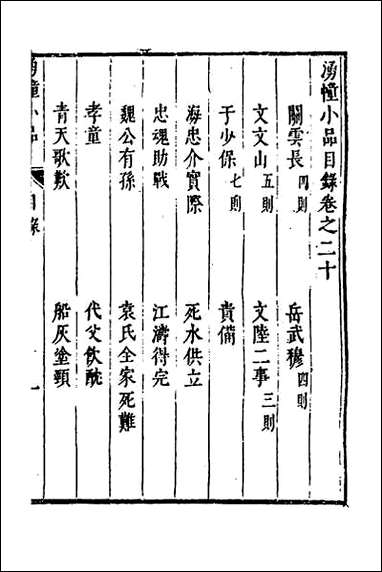 湧幢小品目錄卷之二十
關雲長 四則
岳武穆 四則
文文山 五則
文陸二事 三則
于少保 七則
責備
海忠介實際
死水供立
忠魂助戰
江濤得完
魏公有孫
袁氏全家死難
孝童
代父飲酖
青天歌歎
船灰塗頸
湧幢小品
目錄